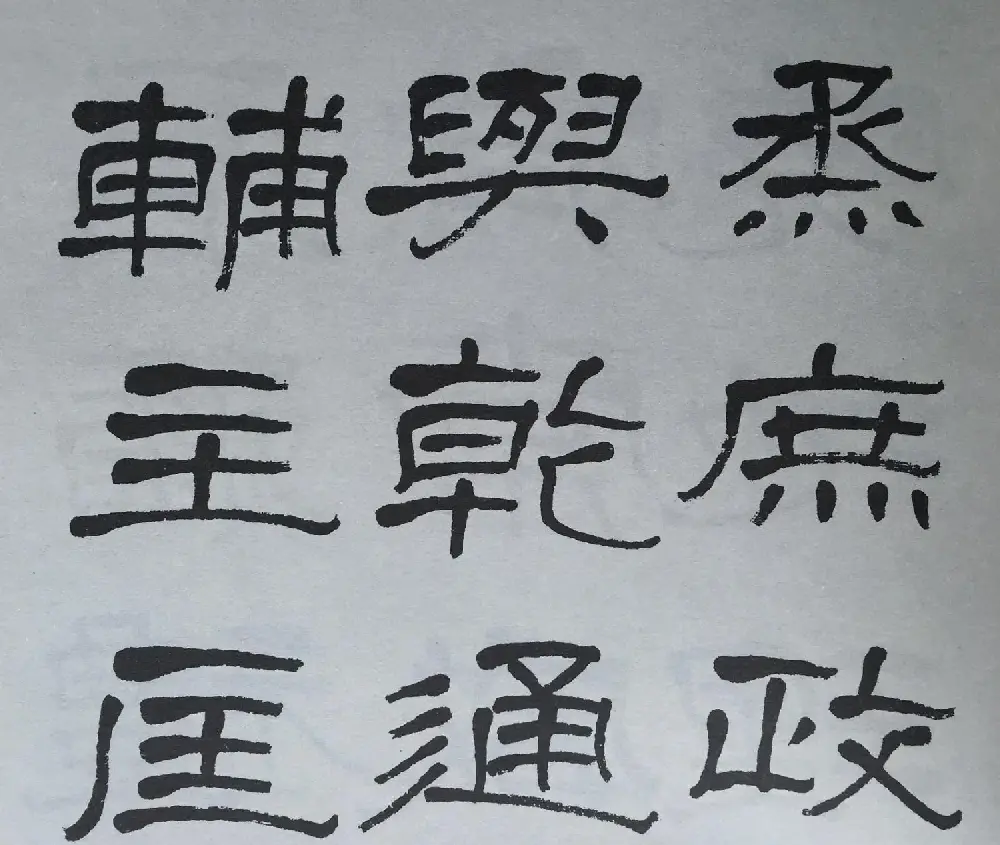 烝庶政
與乾通
輔主匡